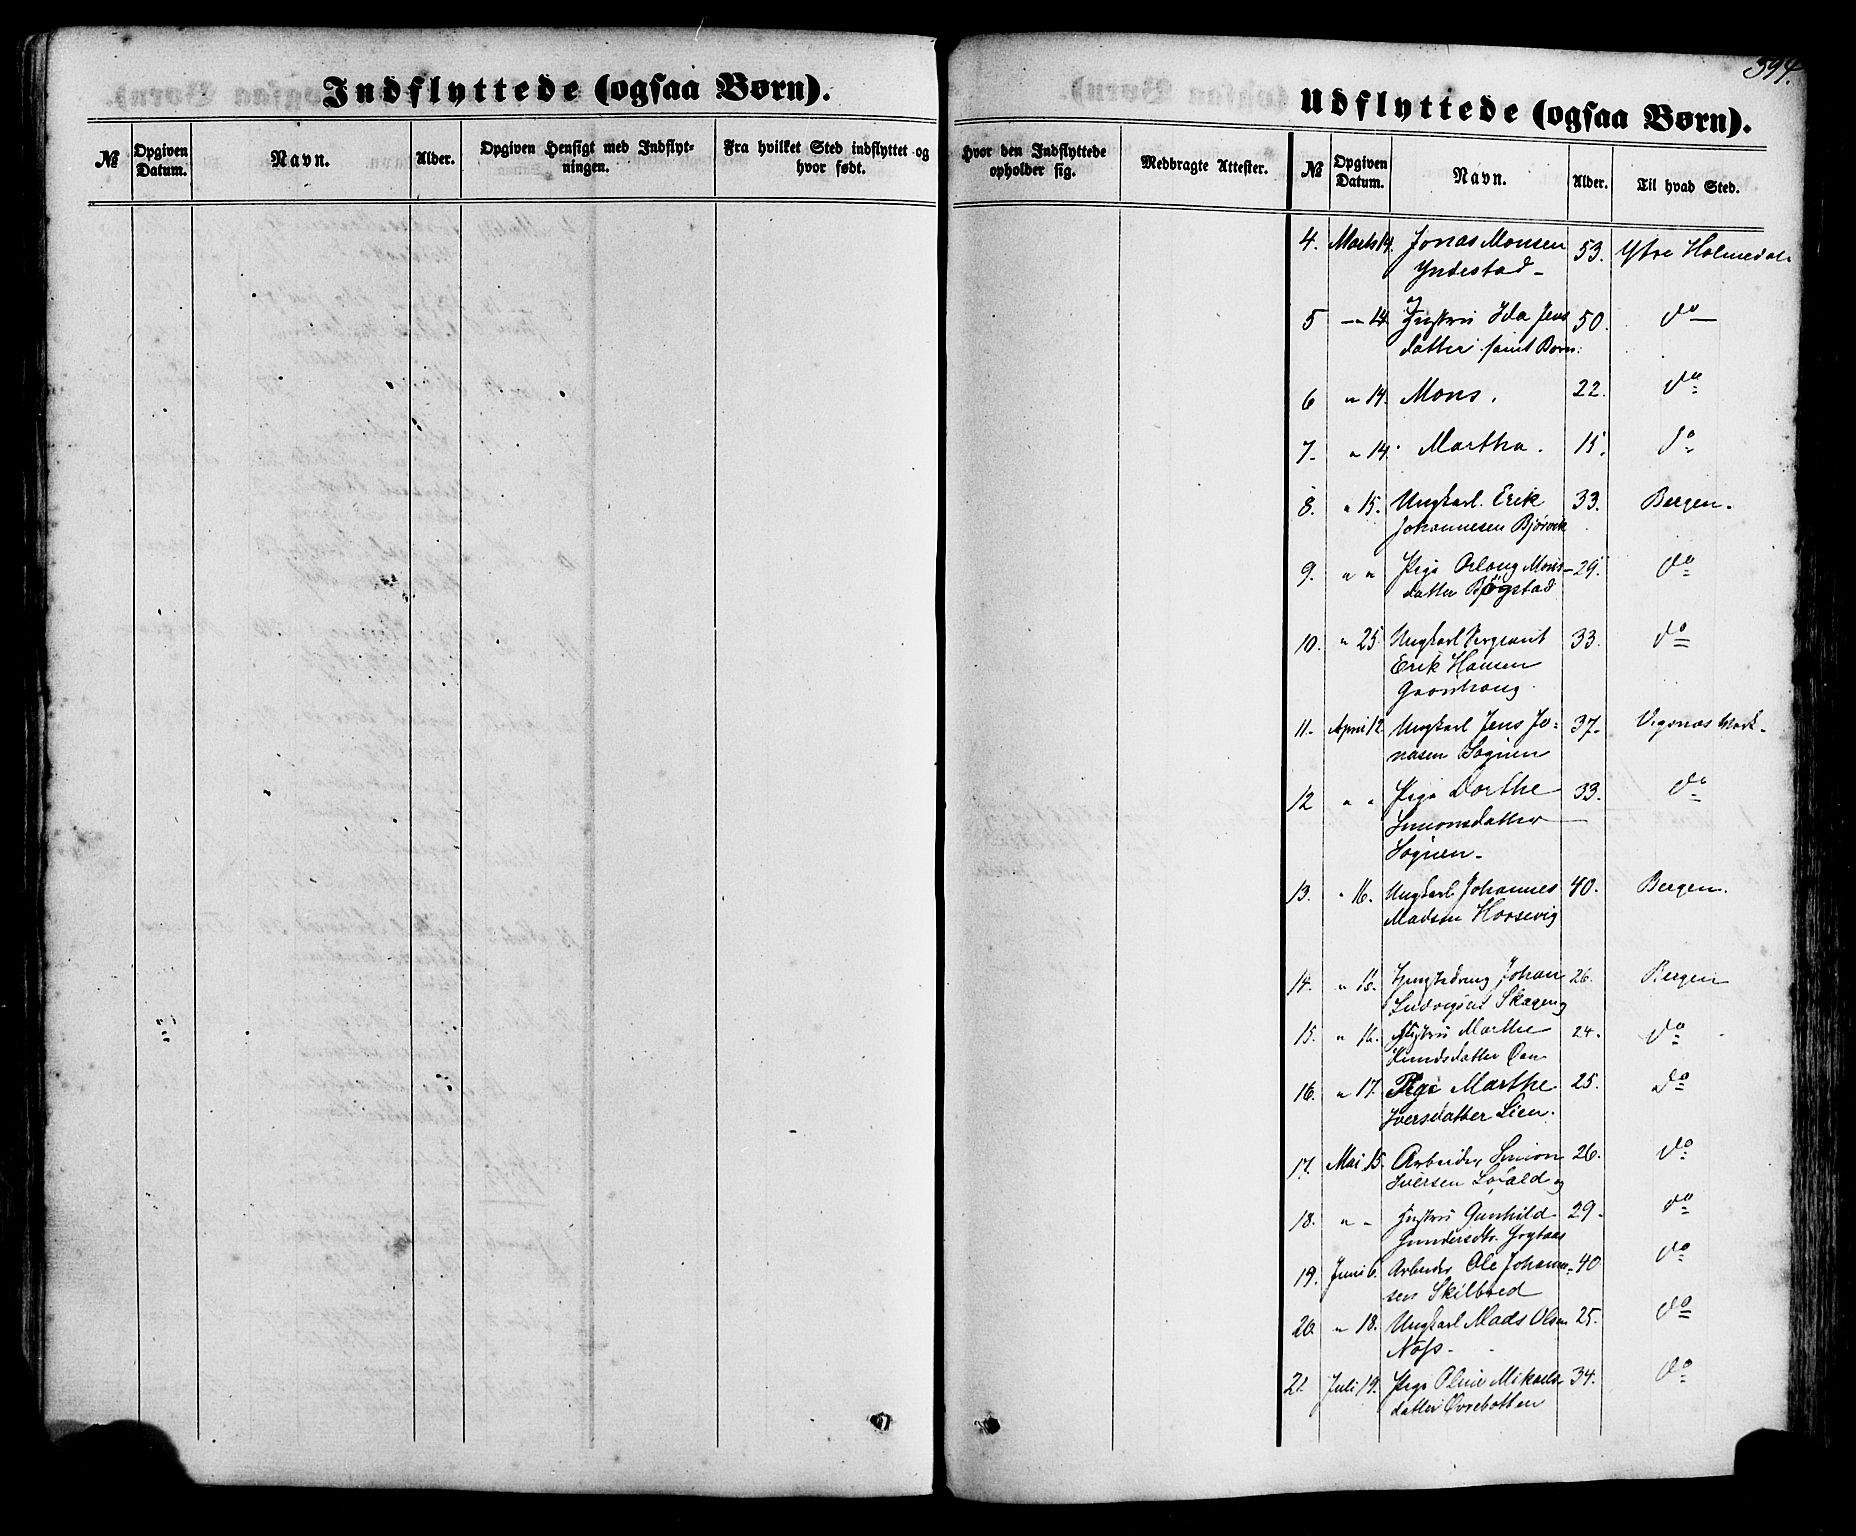 Indflyttede (ogsaa Børn).
№
Opgiven Datum.
Navn.
Alder.
Opgiven Hensigt med Indflyt-
ningen.
Fra hvilket Sted indflyttet og
hvor født.
394.
Udflyttede (ogsaa Børn).
Hvor den Indflyttede
opholder sig.
Medbragte Attester.
№
Opgiven Datum.
Navn.
Alder.
Til hvad Sted.
4. Marts 14. Jonas Monsen 53. Ytre Holmedal
Yndestad
5 — " 14 Hustru Ida Jens 50. do
datter samt Børn:
6 " 14. Mons. 22. do
7. " 14. Martha. 15. do
8. " 15. Ungkarl. Erik 33. Bergen.
Johannesen Bjørvik
9. " " Pige Oloug Mons- 29. do
datter Bøgstad
10. " 25. Ungkarl Sergeant 33. do
Erik Hansen
11. April 12 Ungkarl Jens Jo- 37.
nasen Sognen
12 " " Pige Dorthe 33. do
Simonsdatter
Sognen.
13. " 16. Ungkarl Johannes 40. Bergen.
Madsen Horsevig
14. " 16. Johan 26. Bergen
Ludvigsen Skagen og
15. " 16. Hustru Marthe 24. do
16. " 17. Pige Marthe 25. do
Iversdatter Lien.
17. Mai 15. Arbeider Simon 26. do
Iversen og
18. " " Hustru Gunhild 29. do
Gundersdtr.
19. Juni 6. Arbeider Ole Johanne- 40. do
sen Skilbred
20. " 18. Ungkarl Mads Olsen 25. do
21. Juli 19. Pige Oline Mikaels 34. do
datter Øvrebotten